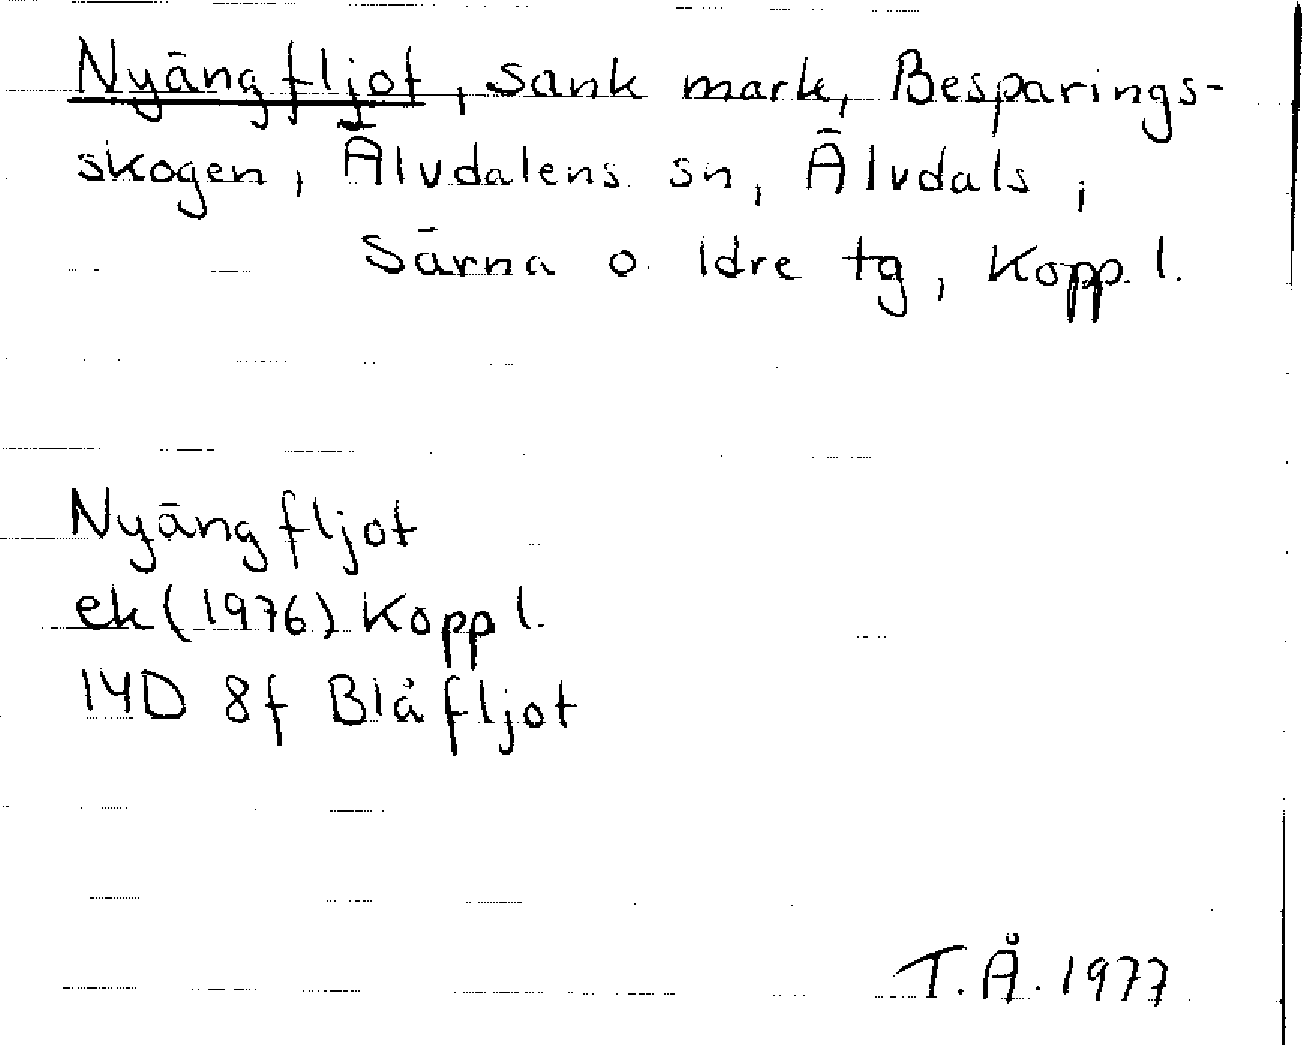 Nyängfljot, sank mark, Besparings-
skogen, Älvdalens sn, Älvdals,
Särna o. Idre tg, Kopp. l.
Nyängfljot
ek (1976) Kopp l.
14D 8f Blåfljot
T.Å. 1977